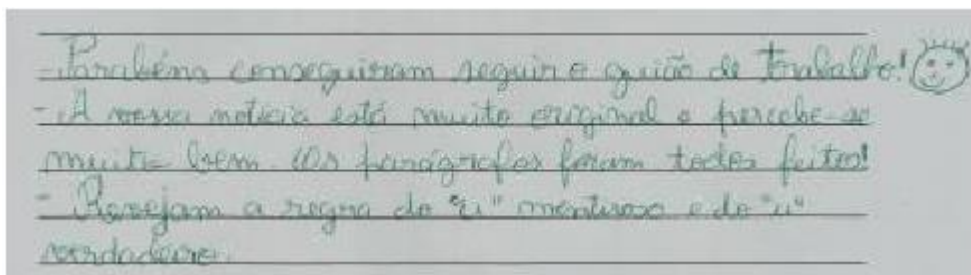 - Parabéns conseguiram seguir o guião de trabalho!
- A vossa notícia está muito original e percebe-se
muito bem. Os parágrafos foram todos feitos!
- Revejam a regra do "u" mentiroso e do "u"
verdadeiro.